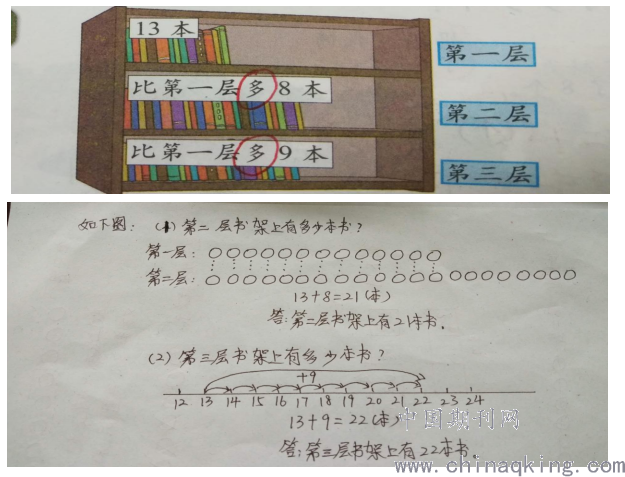 13 本
第一层
比第一层多8 本
第二层
比第一层多9 本
第三层
如下图: (1) 第二层书架上有多少本书?
第一层:
第二层:
13+8=21(本)
答:第二层书架上有21本书.
(2) 第三层书架上有多少本书?
+9
12 13 14 15 16 17 18 19 20 21 22 23 24
13+9=22(本)
中国期刊网
答:第三层书架上有22本书.
www.chinaqking.com